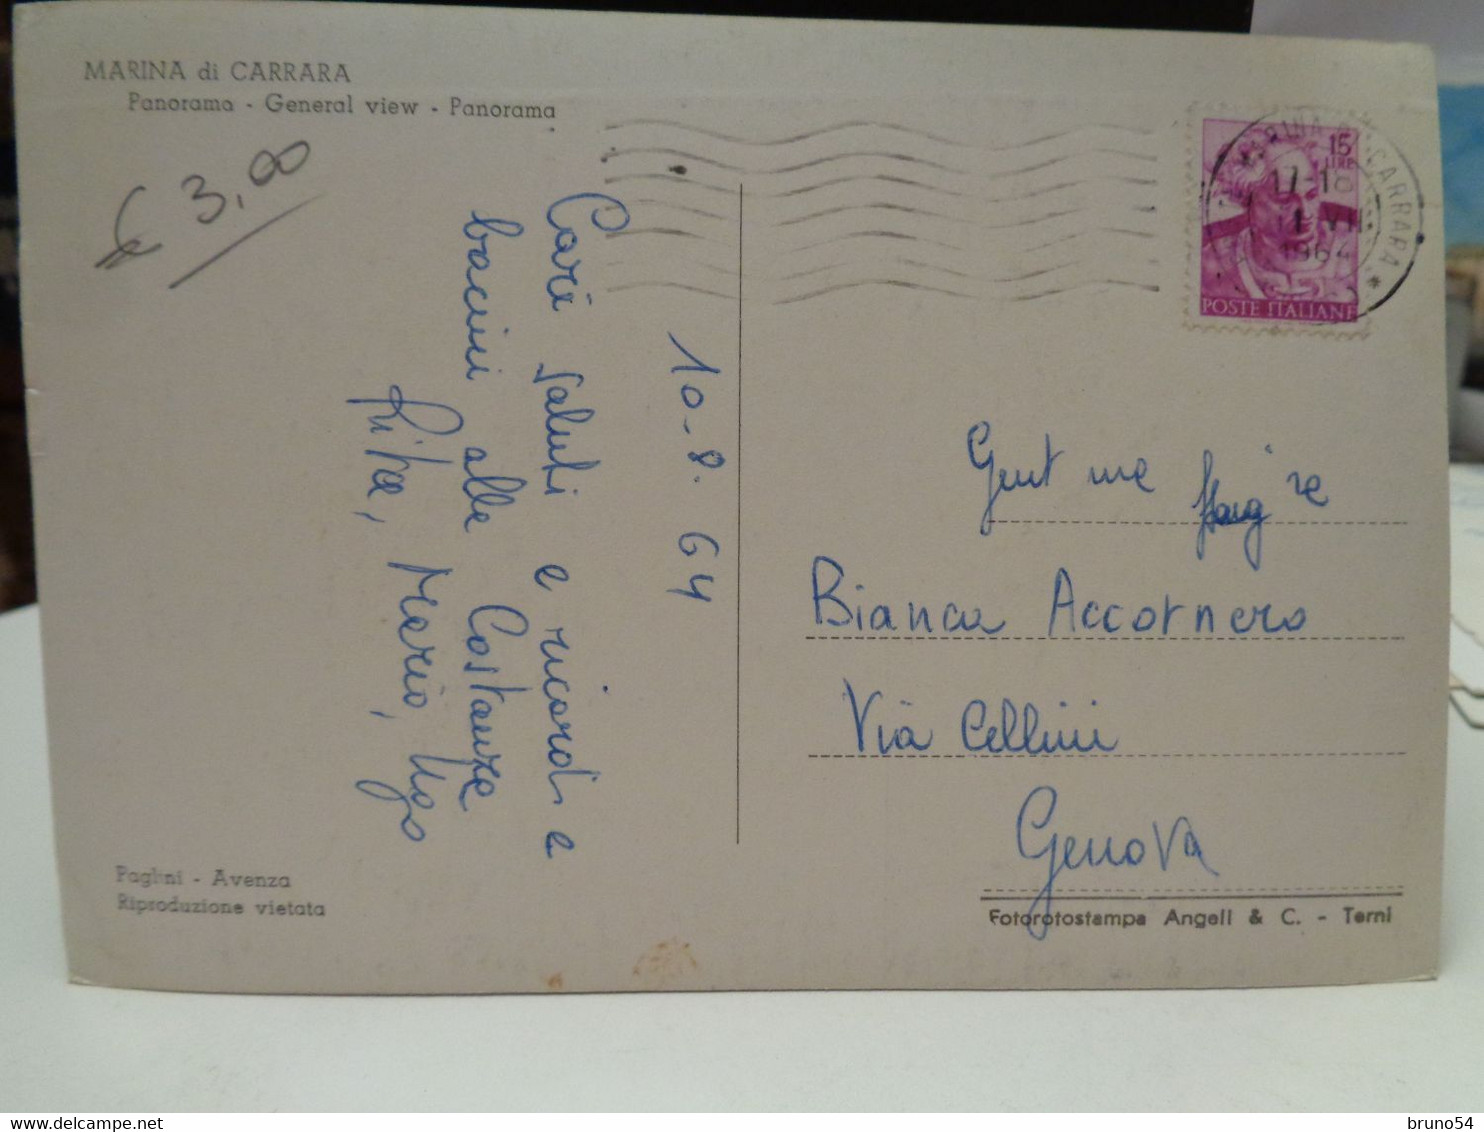 MARINA di CARRARA
Panorama - General view - Panorama
€ 3,00
10-8.64
Cari saluti e ricordi e
bacini alle Costanze
Rita, Mario, Ugo
15
LIRE
POSTE ITALIANE
MARINA DI CARRARA
17-18
1964
Gent me
Bianca Accornero
Via Cellini
Genova
Paglini - Avenza
Riproduzione vietata
Fotorotostampa Angeli & C. - Terni
bruno54